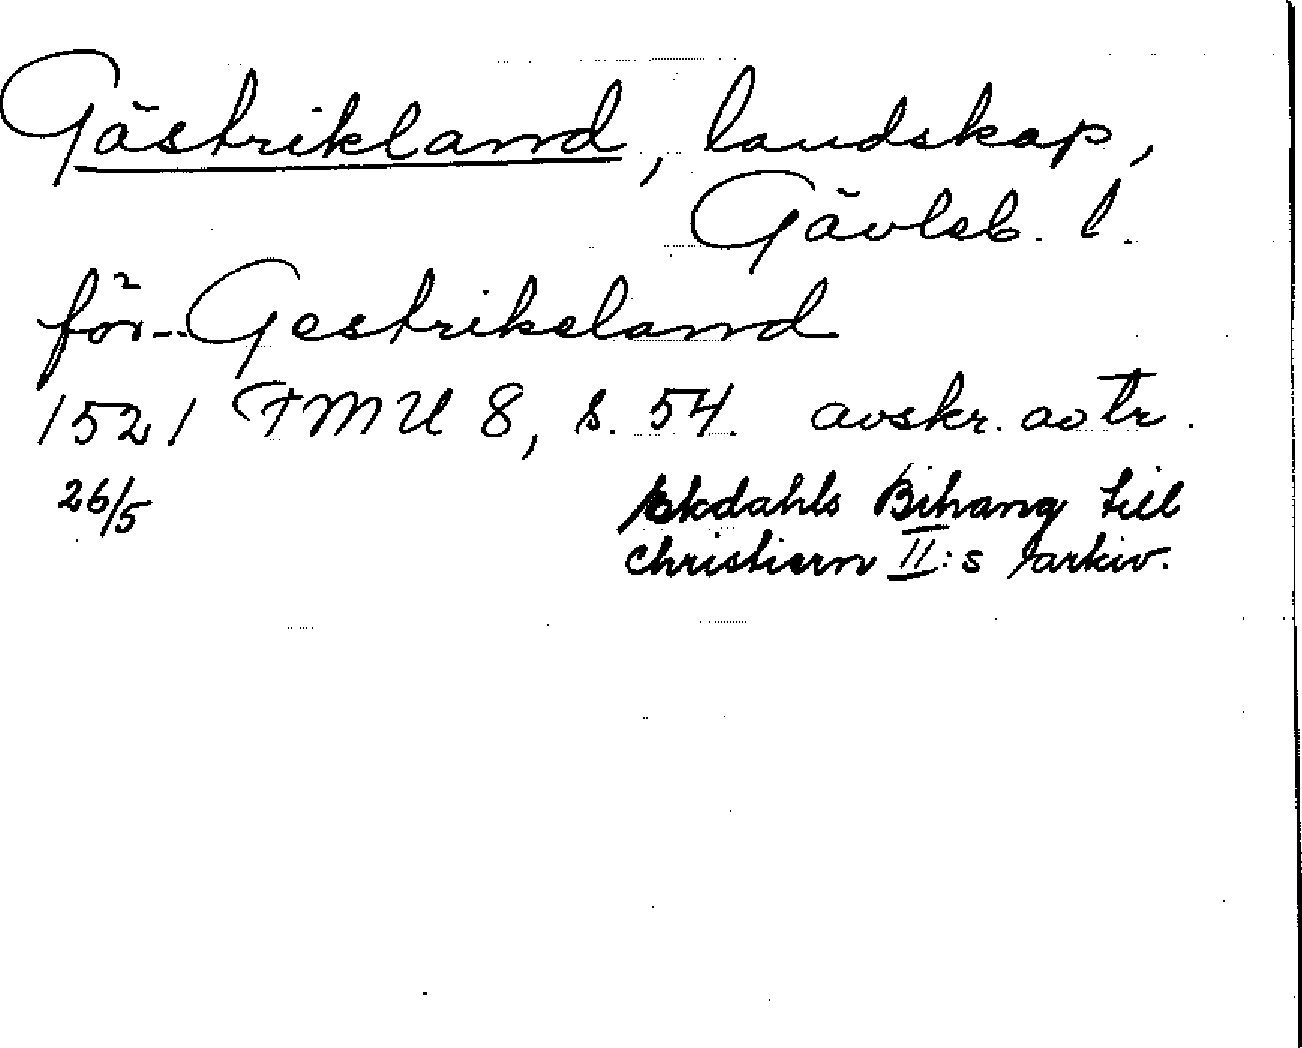 Gästrikland, landskap,
Gävleb. l.
för Gestrikeland
1521 FMU 8, s. 54. avskr. av tr.
26/5
Ekdahls Bihang till
Christiern II:s arkiv.